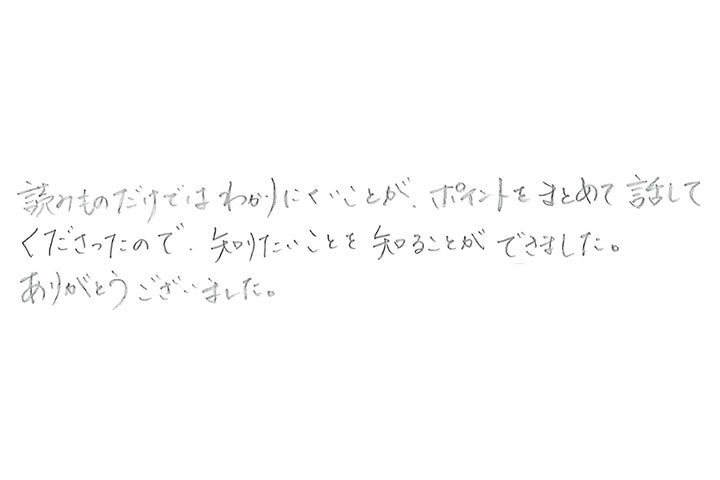 読みものだけではわかりにくいことが、ポイントをまとめて話して
くださったので、知りたいことを知ることができました。
ありがとうございました。